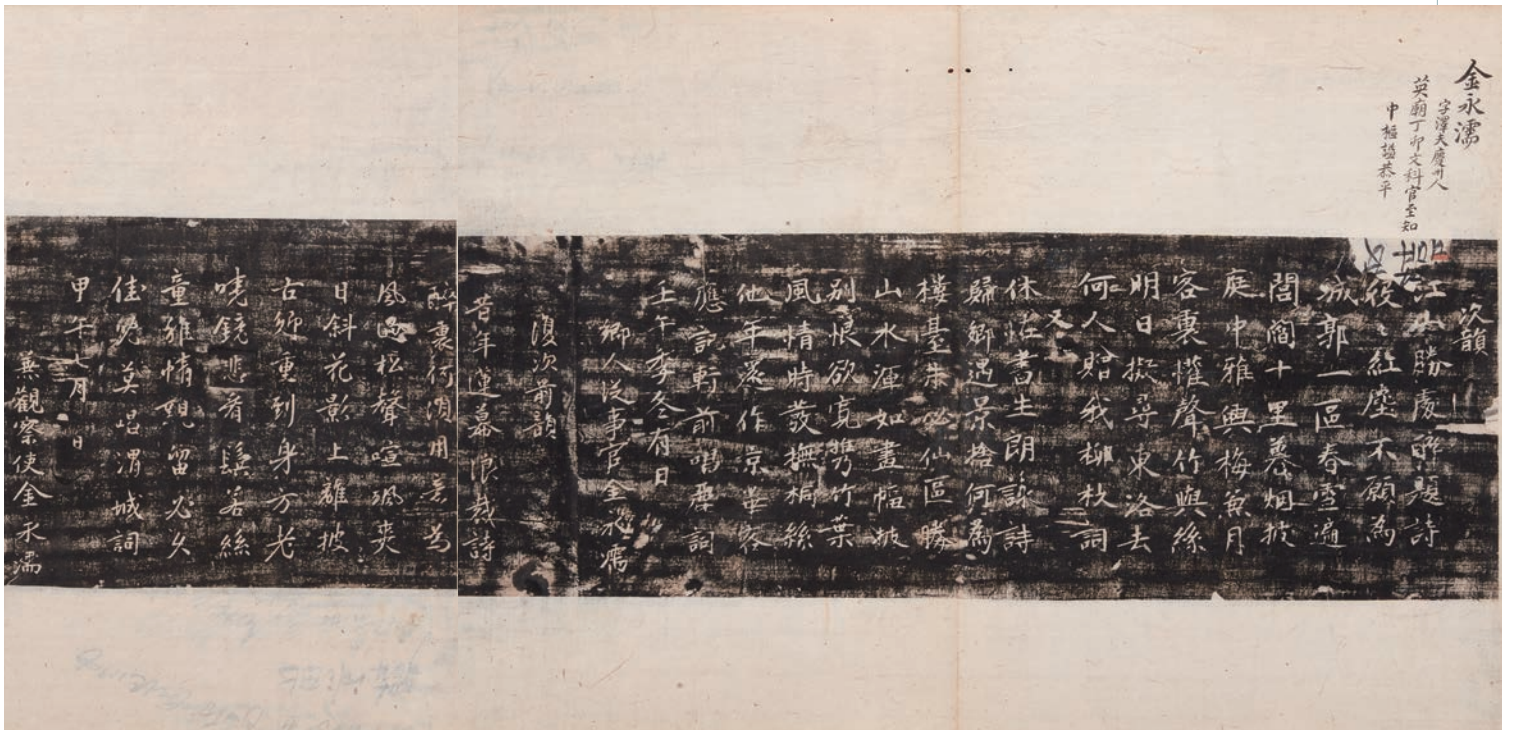 金永濡
字澤夫慶州人
英廟丁卯文科官至知
中樞諡恭平
次韻
江山勝處聊題詩
役〻紅塵不願爲
城郭一區春雪遍
閭閻十里暮烟披
庭中雅興梅兼月
客裏懽聲竹與絲
明日擬尋東洛去
何人贈我柳枝詞
又
休怪書生朗詠詩
歸鄉遇景捨何爲
樓臺朱 仙區勝
山水渾如畫幅披
別恨欲寬 竹葉
風情時發撫桐絲
他年 作 客
應記軒前唱 詞
壬午季冬有日
鄉人從事官金永濡
復次前韻
昔年蓮幕浪裁詩
醉裏 用 爲
風過松聲喧颯爽
日斜花影上離披
古鄉重到身方老
曉鏡悲看鬢若絲
童稚情 留必久
佳 莫唱渭城詞
甲午七月 日
兼觀察使金永濡